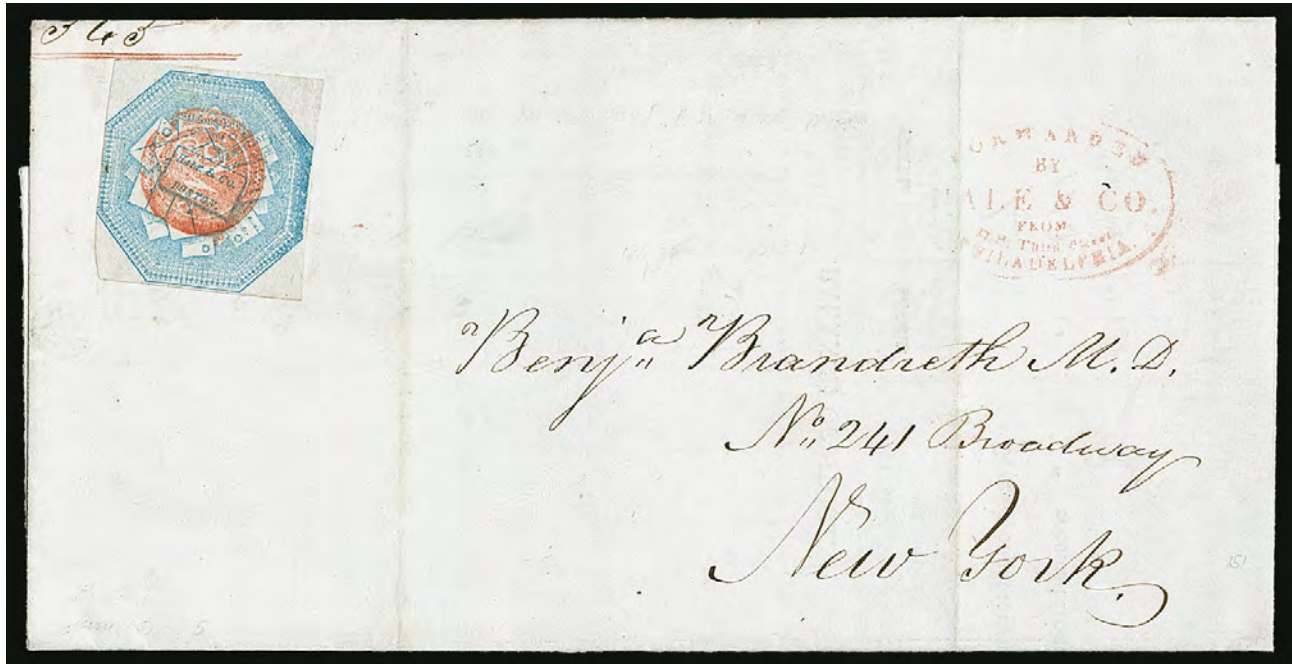 345
HALE & CO.
BOSTON.
FORWARDED
BY
HALE & CO.
FROM
Third Street
PHILADELPHIA.
Benjª Brandreth M. D.
Nº 241 Broadway
New York.
151